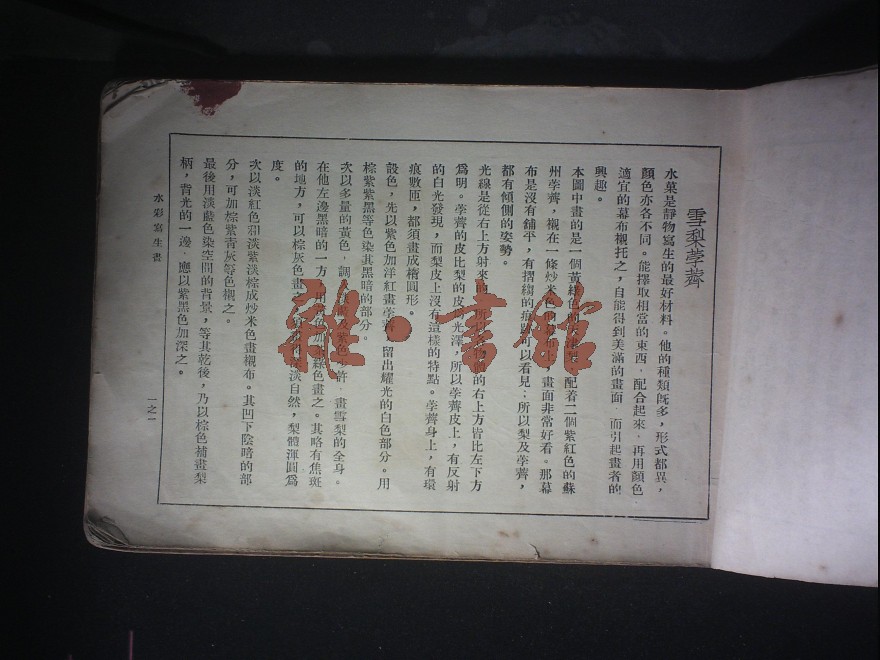 雪梨荸薺
水菓是靜物寫生的最好材料。他的種類旣多，形式都異，
顏色亦各不同。能擇取相當的東西，配合起來，再用顏色
適宜的幕布襯托之，自能得到美滿的畫面，而引起畫者的
興趣。
本圖中畫的是一個黃綠色的 配着二個紫紅色的蘇
州荸薺，襯在一條炒米色的 上，畫面非常好看。那幕
布是沒有舖平，有摺縐的痕跡可以看見；所以梨及荸薺，
都有傾側的姿勢。
光線是從右上方射來的，所 物體的右上方皆比左下方
爲明。荸薺的皮比梨的皮 光澤，所以荸薺皮上，有反射
的白光發現，而梨皮上沒有這樣的特點。荸薺身上，有環
痕數匝，都須畫成橢圓形。
設色，先以紫色加洋紅畫荸薺，留出耀光的白色部分。用
棕紫紫黑等色染其黑暗的部分。
次以多量的黃色，調 及紫色少許，畫雪梨的全身。
在他左邊黑暗的一方，用 色加 綠色畫之。其略有焦斑
的地方，可以棕灰色畫之。 淡自然，梨體渾圓爲
度。
次以淡紅色和淡紫淡棕成炒米色畫襯布。其凹下陰暗的部
分，可加棕紫青灰等色襯之。
最後用淡藍色染空間的背景，等其乾後，乃以棕色補畫梨
柄，背光的一邊，應以紫黑色加深之。
水彩寫生畫
一之一
雜·書館